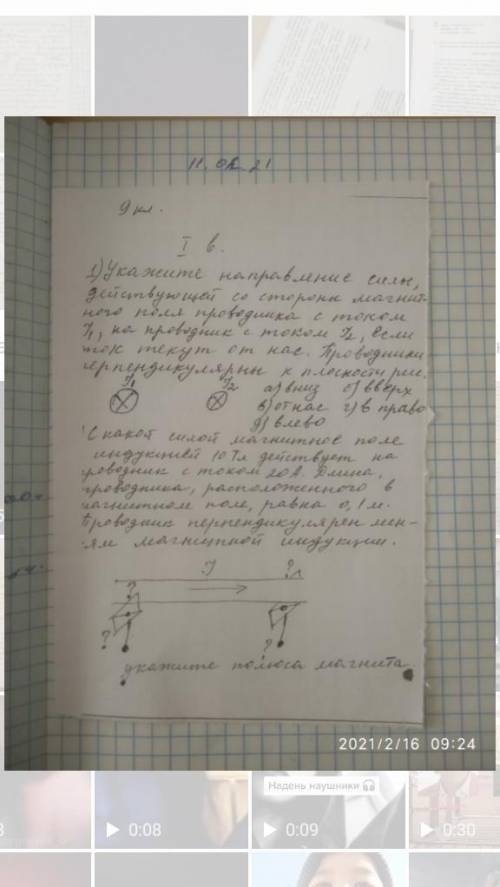 11. 02. 21
9 кл.
I в.
1) Укажите направление силы,
действующей со стороны магнит-
ного поля проводника с током
I₁, на проводник с током I₂, если
ток текут от нас. Проводники
перпендикулярны к плоскости рис.
I₁ I₂ а) вниз б) вверх
в) от нас г) в право
д) влево
С какой силой магнитное поле
индукцией 10 Тл действует на
проводник с током 20А. Длина,
проводника, расположенного в
магнитном поле, равна 0,1 м.
Проводник перпендикулярен лин-
иям магнитной индукции.
I ?
?
? ?
укажите полюса магнита
2021/2/16 09:24
Надень наушники
0:08
0:09
0:30